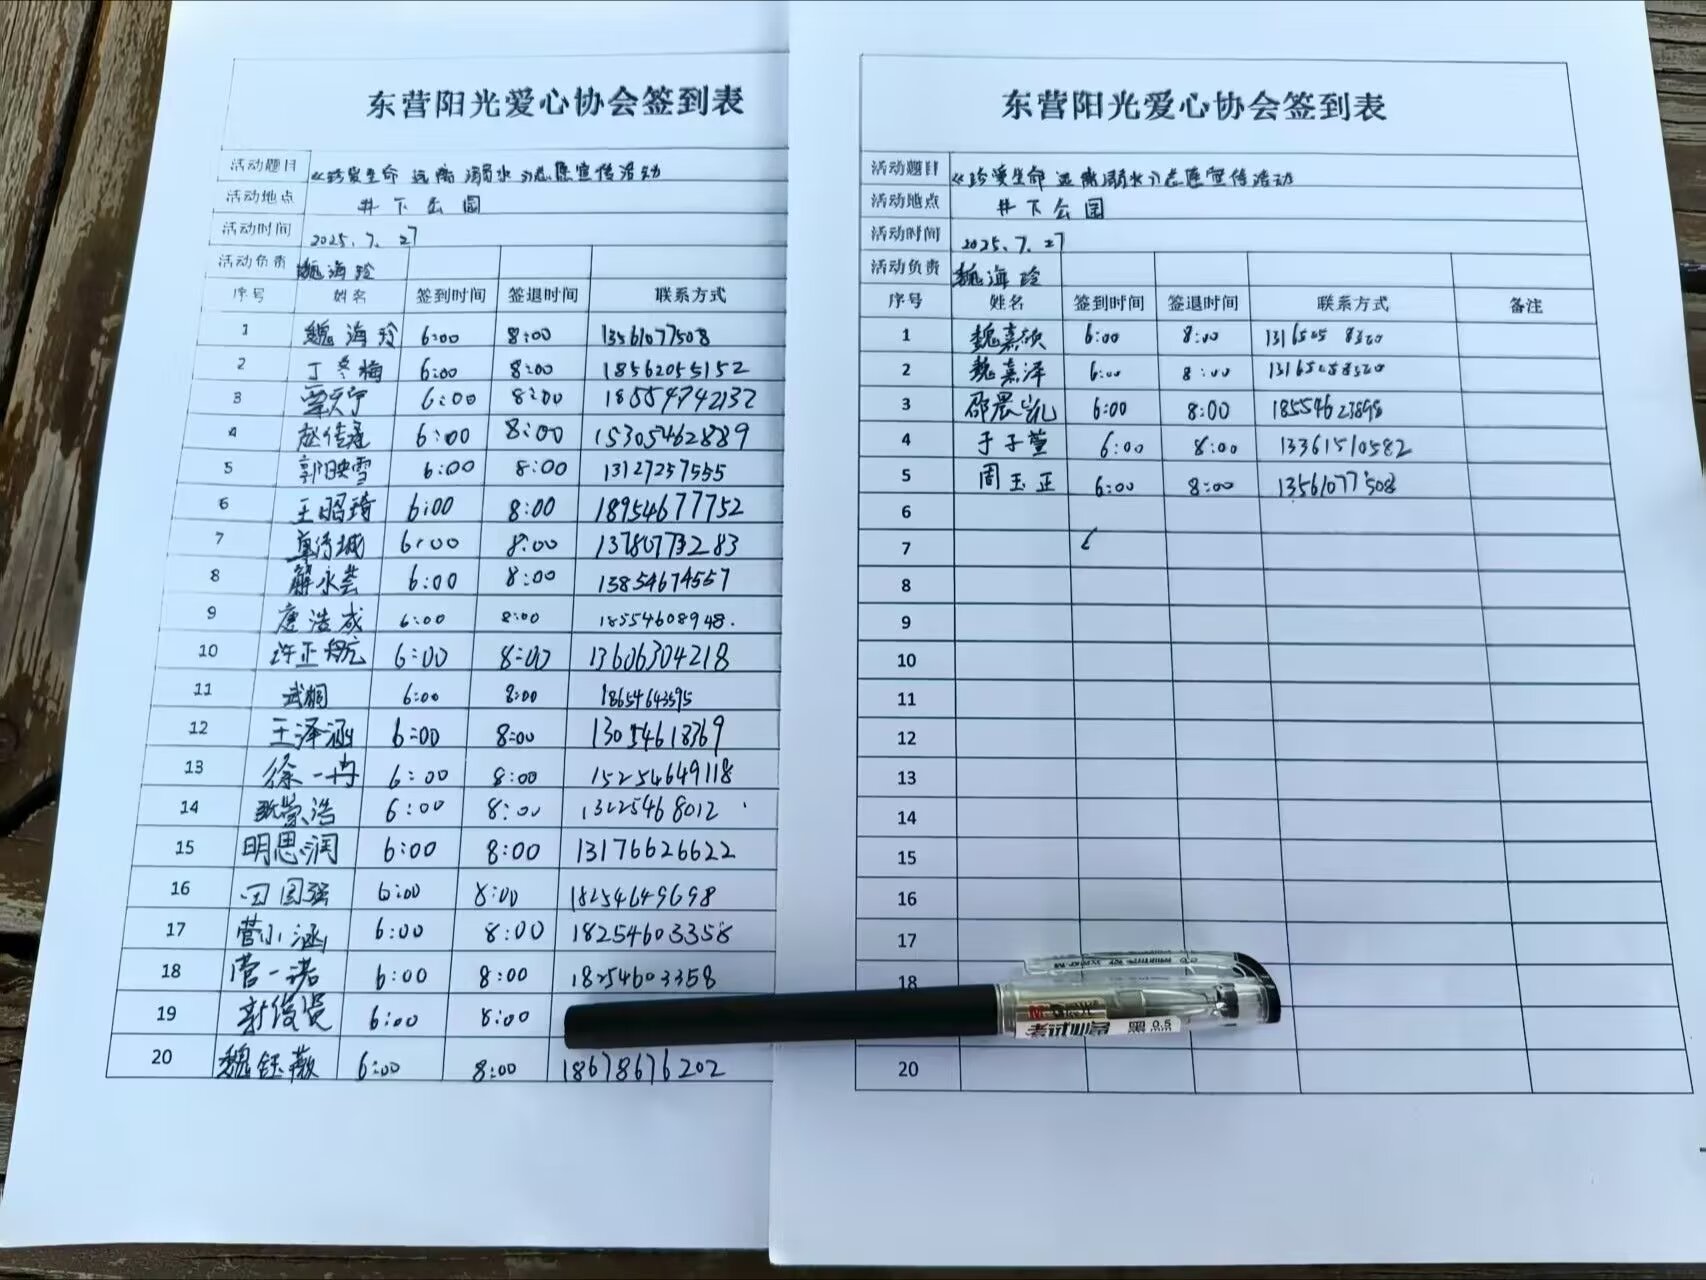 东营阳光爱心协会签到表
活动题目 《珍爱生命 远离溺水》志愿宣传活动
活动地点 井下公园
活动时间 2025.7.27
活动负责 魏海玲
序号 姓名 签到时间 签退时间 联系方式
1 魏海玲 6:00 8:00 13561077508
2 丁冬梅 6:00 8:00 18562055152
3 6:00 8:00 18554742132
4 赵佳莲 6:00 8:00 15305462889
5 郭映雪 6:00 8:00 13127257555
6 王昭琦 6:00 8:00 18954677752
7 6:00 8:00
8 解永芸 6:00 8:00 13854674557
9 唐浩成 6:00 8:00 18554608948.
10 许正航 6:00 8:00 13606304218
11 武桐 6:00 8:00
12 王泽涵 6:00 8:00 13054618369
13 徐一冉 6:00 8:00 15254649118
14 6:00 8:00
15 明思润 6:00 8:00 13176626622
16 田国强 6:00 8:00 18254649698
17 菅小涵 6:00 8:00 18254603358
18 菅一诺 6:00 8:00 18254603358
19 6:00 8:00
20 魏钰薇 6:00 8:00 18678676202
东营阳光爱心协会签到表
活动题目 《珍爱生命 远离溺水》志愿宣传活动
活动地点 井下公园
活动时间 2025.7.27
活动负责 魏海玲
序号 姓名 签到时间 签退时间 联系方式 备注
1 魏嘉硕 6:00 8:00
2 魏嘉泽 6:00 8:00
3 邵晨凯 6:00 8:00 18554623898
4 于子萱 6:00 8:00 13361510582
5 周玉正 6:00 8:00 13561077508
6
7 6
8
9
10
11
12
13
14
15
16
17
18
20
晨光
考试必备 黑 0.5